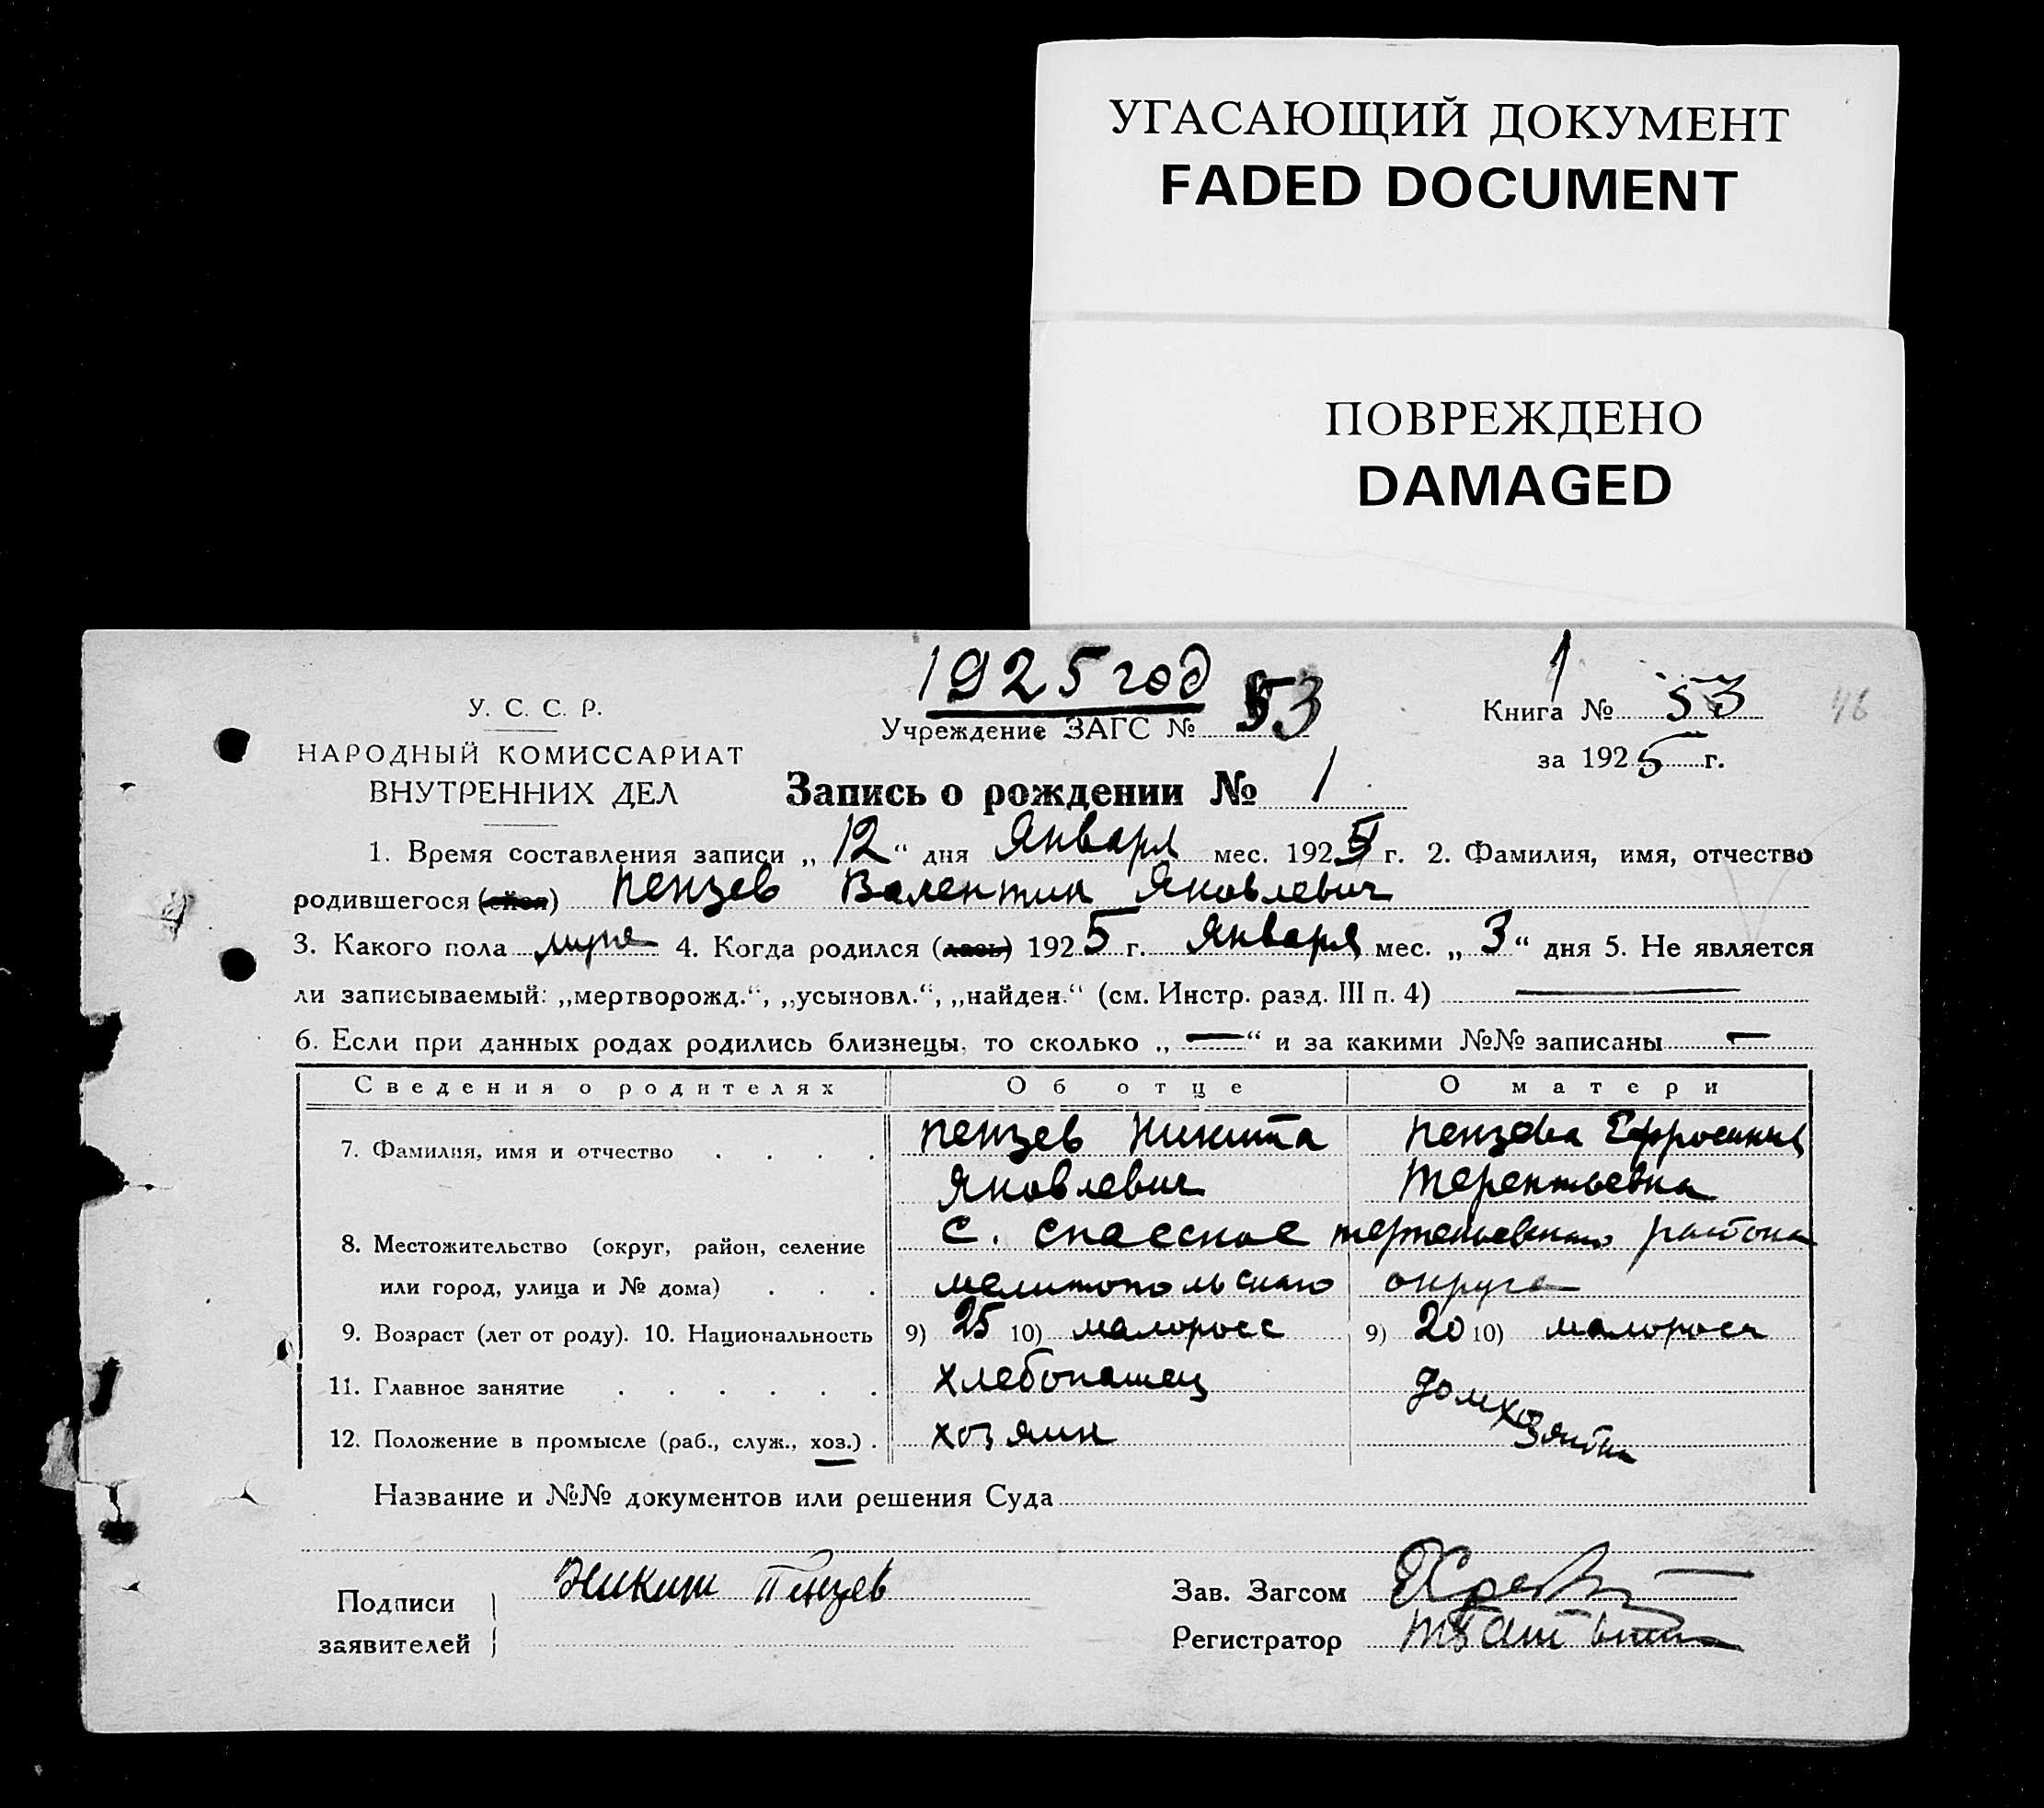 УГАСАЮЩИЙ ДОКУМЕНТ
FADED DOCUMENT
ПОВРЕЖДЕНО
DAMAGED
1925 год
1
У. С. С. Р.
НАРОДНЫЙ КОМИССАРИАТ
ВНУТРЕННИХ ДЕЛ
Учреждение ЗАГС № 53
Книга № 53
46
за 1925 г.
Запись о рождении № 1
1. Время составления записи „12“ дня Января мес. 1925 г. 2. Фамилия, имя, отчество
родившегося Пензев Валентин Яковлевич
3. Какого пола муж 4. Когда родился 1925 г. Января мес. „3“ дня 5. Не является
ли записываемый: „мертворожд.“, „усыновл.“, „найден.“ (см. Инстр. разд. III п. 4) —
6. Если при данных родах родились близнецы, то сколько „—“ и за какими №№ записаны —
Сведения о родителях Об отце О матери
7. Фамилия, имя и отчество . . . . Пензев Никита Пензева Ефросиния
Яковлевич Терентьевна
8. Местожительство (округ, район, селение с. Спасское района
или город, улица и № дома) . . . мелитопольскаго округа
9. Возраст (лет от роду). 10. Национальность 9) 25 10) малоросс 9) 20 10) малоросс
11. Главное занятие . . . . . . хлебопашец домхозяйка
12. Положение в промысле (раб., служ., хоз.) . хозяин
Название и №№ документов или решения Суда
Подписи Никит Пензев
заявителей
Зав. Загсом
Регистратор